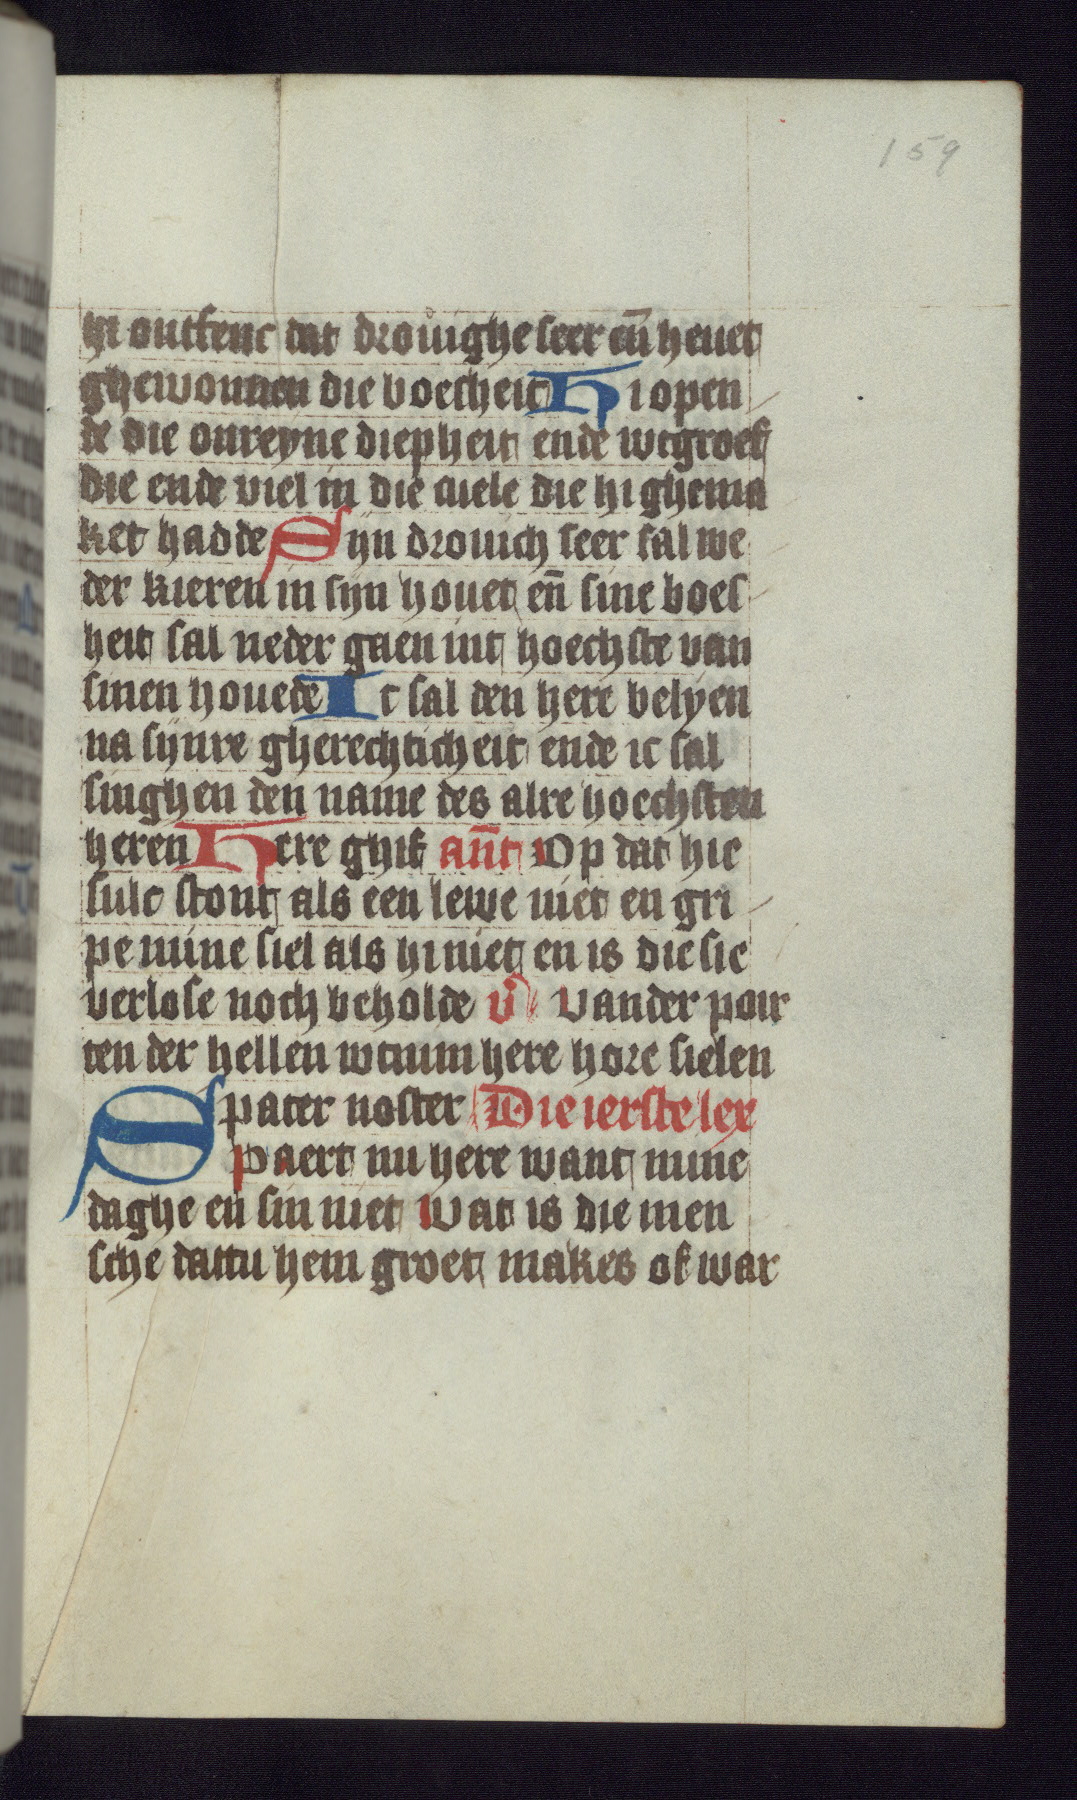 159
hi ontfenc dat drouighe seer en̄ heuet
ghewonnen die boesheit Hi open
de die onreyne diepheit ende wtgroef
die ende viel in die cuele die hi ghema
ket hadde Syn drouich seer sal we
der kieren in syn houet en̄ sine boes
heit sal neder gaen int hoechste van
sinen houede Ic sal den here belyen
na sijnre gherechticheit ende ic sal
singhen den name des alre hoechsten
heren Here ghif an̄t Op dat hie
sulc stont als een lewe niet en gri
pe mine siel als hi niet en is die sie
verlose noch beholde v̄ Vander poir
ten der hellen wtnim here hore sielen
pater noster Die ierste lex
Spaert nu here want mine
daghe en sin niet Wat is die men
sche dattu hem groet makes of war